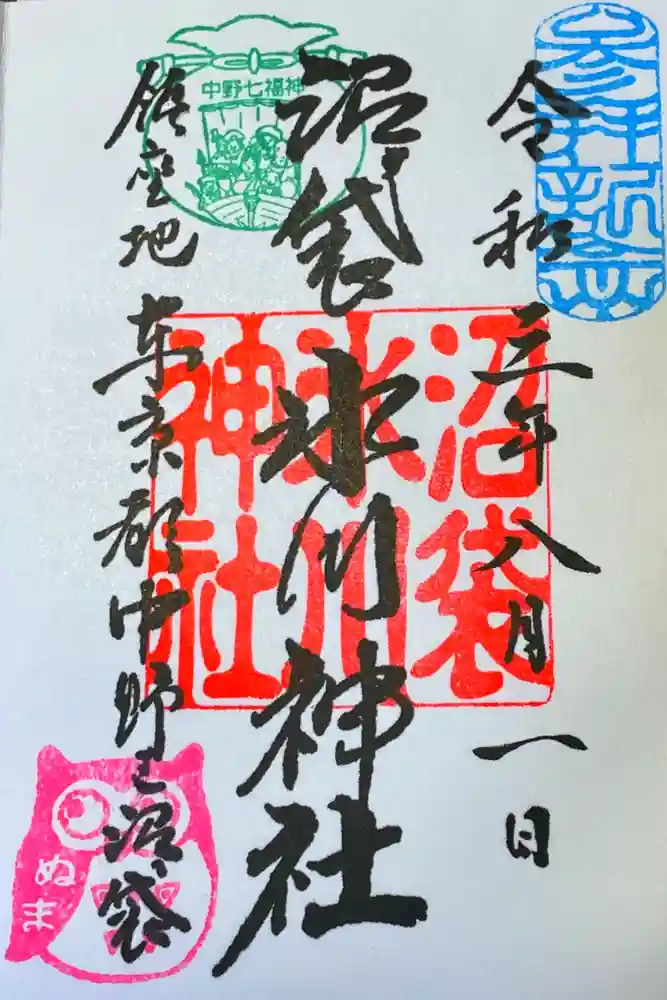 参拝記念
令和三年八月一日
中野七福神
沼袋氷川神社
沼袋
氷川
神社
鎮座地 東京都中野区沼袋
ぬま